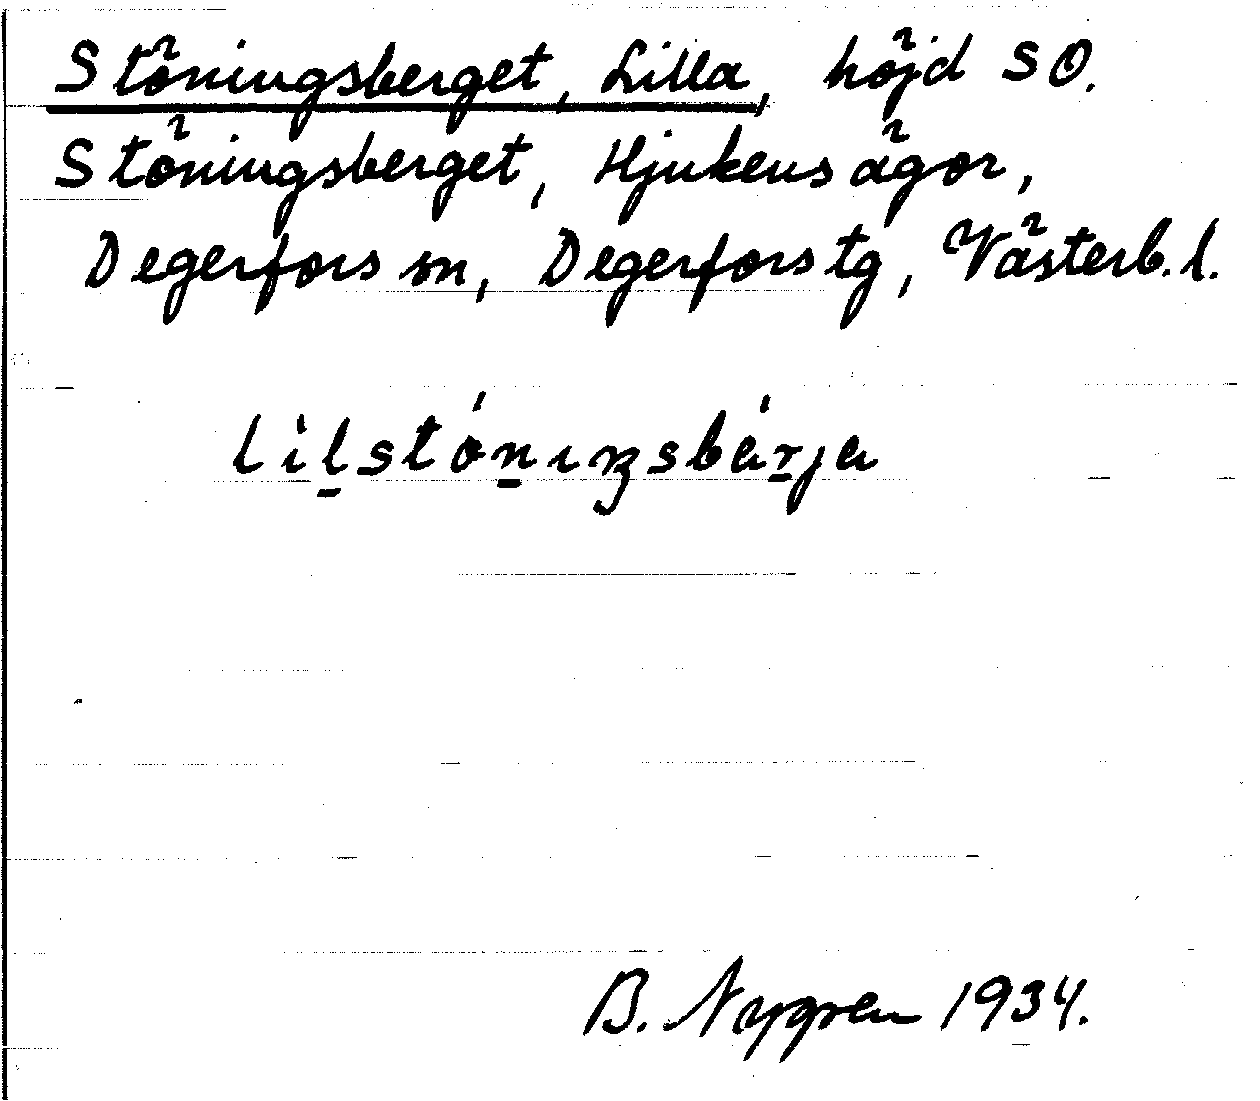 Stöningsberget, Lilla, höjd SO.
Stöningsberget, Hjukens ägor,
Degerfors sn, Degerfors tg, Västerb. l.
lìl̠stón̠ıŋsbár̠ja
B. Nygren 1934.